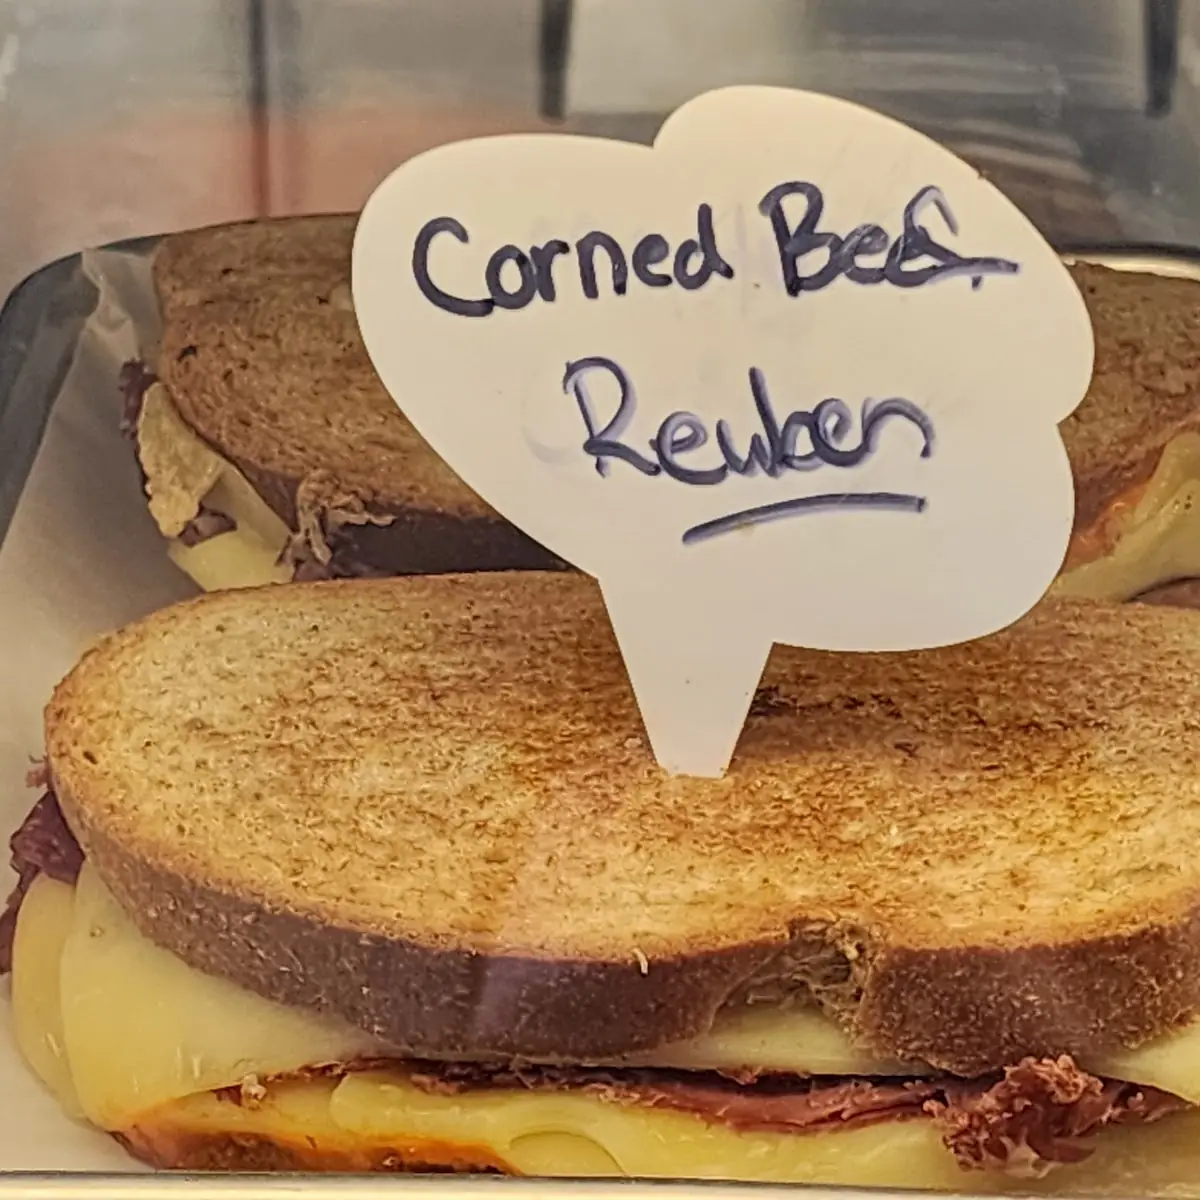 Corned Beef
Reuben